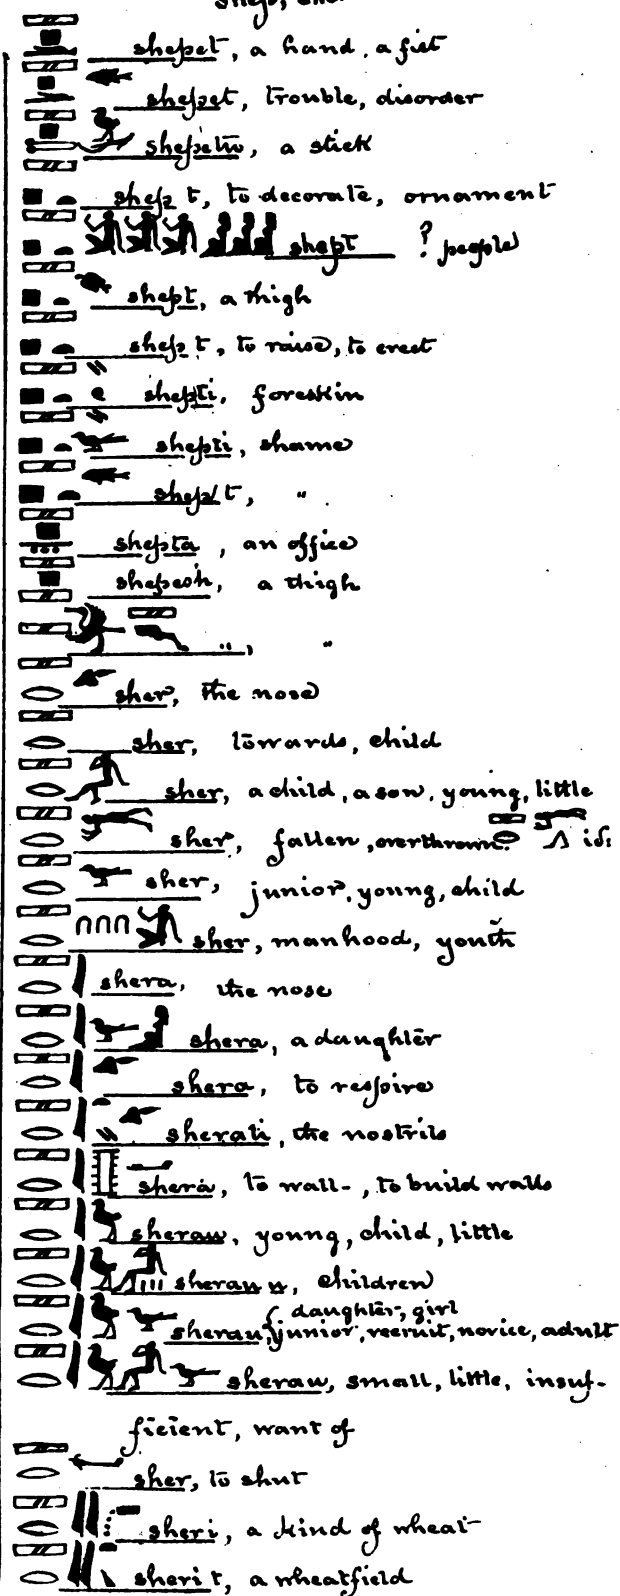 shepet, a hand, a fist
shepet, trouble, disorder
shepetu, a stick
shept, to decorate, ornament
shept ? people
shept, a thigh
shept, to raise, to erect
shepti, foreskin
shepti, shame
shept, "
shepta, an office
shepesh, a thigh
", "
sher, the nose
sher, towards, child
sher, a child, a son, young, little
sher, fallen, overthrown id:
sher, junior, young, child
sher, manhood, youth
shera, the nose
shera, a daughter
shera, to respire
sherati, the nostrils
sherá, to wall-, to build walls
sherau, young, child, little
sherau u, children
daughter, girl
sherau, junior, recruit, novice, adult
sherau, small, little, insuf-
ficient, want of
sher, to shut
sheri, a kind of wheat
sherit, a wheatfield